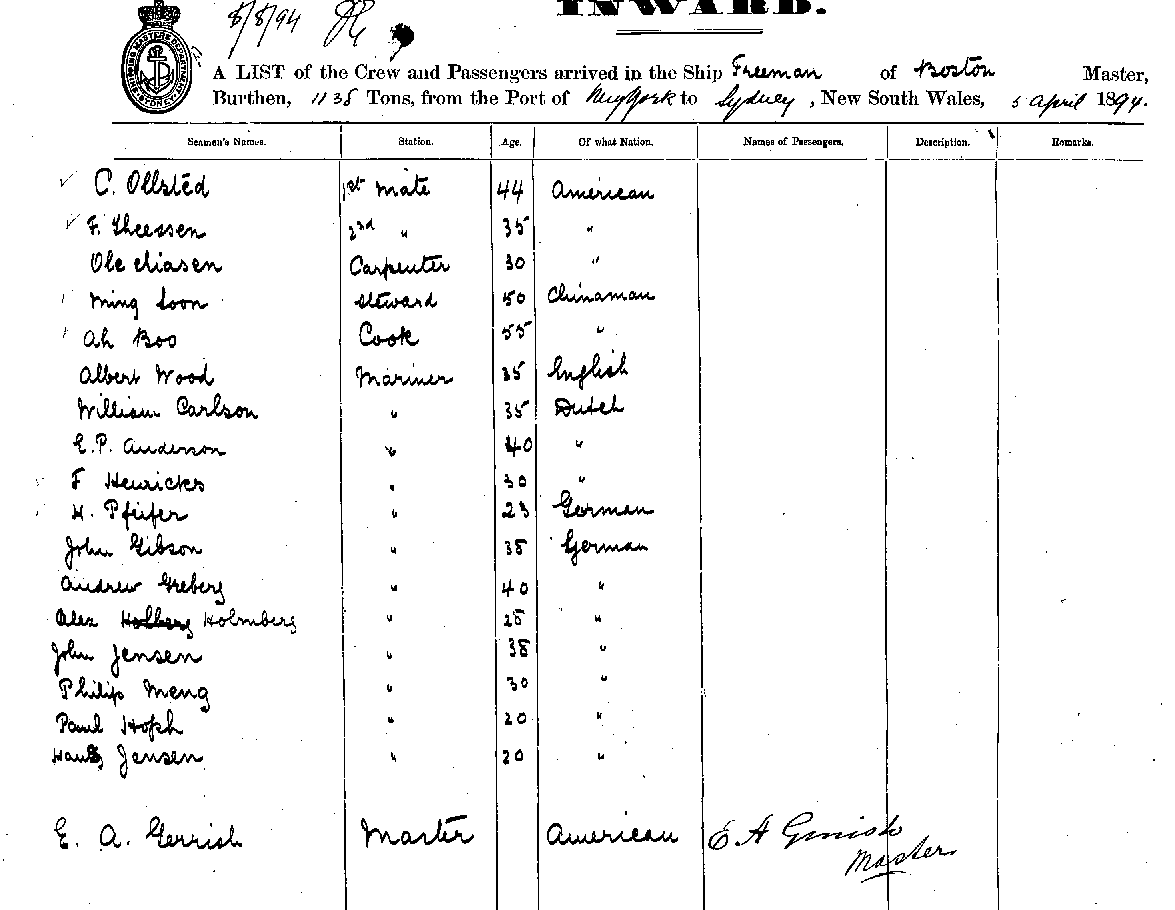 INWARD.
8/8/94
SHIPPING MASTERS DEPARTMENT SYDNEY
A LIST of the Crew and Passengers arrived in the Ship Freeman of Boston Master,
Burthen, 1138 Tons, from the Port of New York to Sydney, New South Wales, 5 April 1894.
Seamen's Names. Station. Age. Of what Nation. Names of Passengers. Description. Remarks.
C. Ollsted 1st Mate 44 American
F. Theessen 2nd " 35 "
Ole Eliasen Carpenter 30 "
Ming Loon Steward 50 Chinaman
Ah Boo Cook 55 "
Albert Wood Mariner 35 English
William Carlson " 35 Dutch
E.P. Anderson " 40 "
F Henricks " 30 "
H. Pfeifer " 23 German
John Gibson " 38 German
Andrew Greberg " 40 "
Alex Holberg Holmberg " 28 "
John Jensen " 38 "
Philip Meng " 30 "
Paul Hoph " 20 "
Hans Jensen " 20 "
E. A. Gerrish Master American E A Gerrish
Master